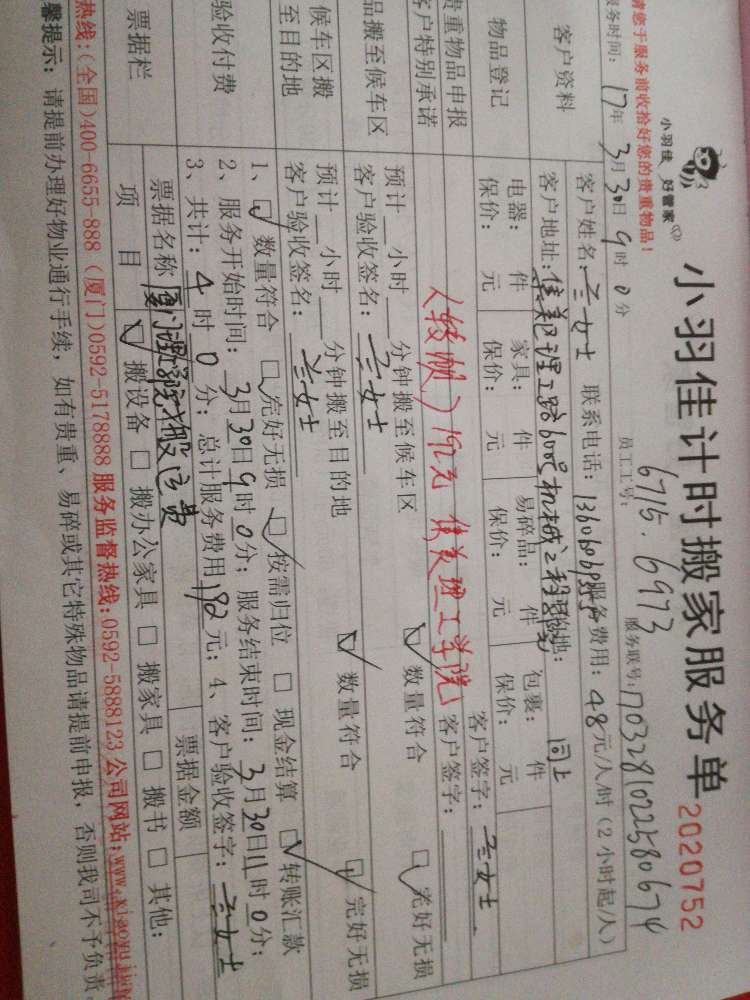 小羽佳 好管家
小羽佳计时搬家服务单 2020752
请您于服务前收拾好您的贵重物品!
服务时间: 17年3月30日9时0分 员工工号: 6715.6973 服务联号: 1703281022580674
客户资料
客户姓名: 兰女士 联系电话: 服务费用: 48元/人/时 (2小时起/人)
客户地址: 集美理工路600号机械工程 目的地: 同上
物品登记
电器: 件 家具: 件 易碎品: 件 包裹: 件
保价: 元 保价: 元 保价: 元 保价: 元
贵重物品申报 客户签字: 兰女士
客户特别承诺 (转账) 192元 集美理工学院 客户签字:
品搬至候车区
预计 小时 分钟搬至候车区 数量符合 完好无损
客户验收签名: 兰女士
候车区搬至目的地
预计 小时 分钟搬至目的地 数量符合 完好无损
客户验收签名: 兰女士
验收付费
1、 数量符合 完好无损 按需归位 现金结算 转账汇款
2、服务开始时间: 3月30日9时0分; 服务结束时间: 3月30日11时0分;
3、共计: 4时0分; 总计服务费用192元; 4、客户验收签字: 兰女士
票据栏
票据名称 搬运费 票据金额
项目 搬设备 搬办公家具 搬家具 搬书 其他:
热线:(全国)400-6655-888 (厦门)0592-5178888 服务监督热线:0592-5888123 公司网站:www.xiaoyu
馨提示: 请提前办理好物业通行手续, 如有贵重、易碎或其它特殊物品请提前申报, 否则我司不予负责